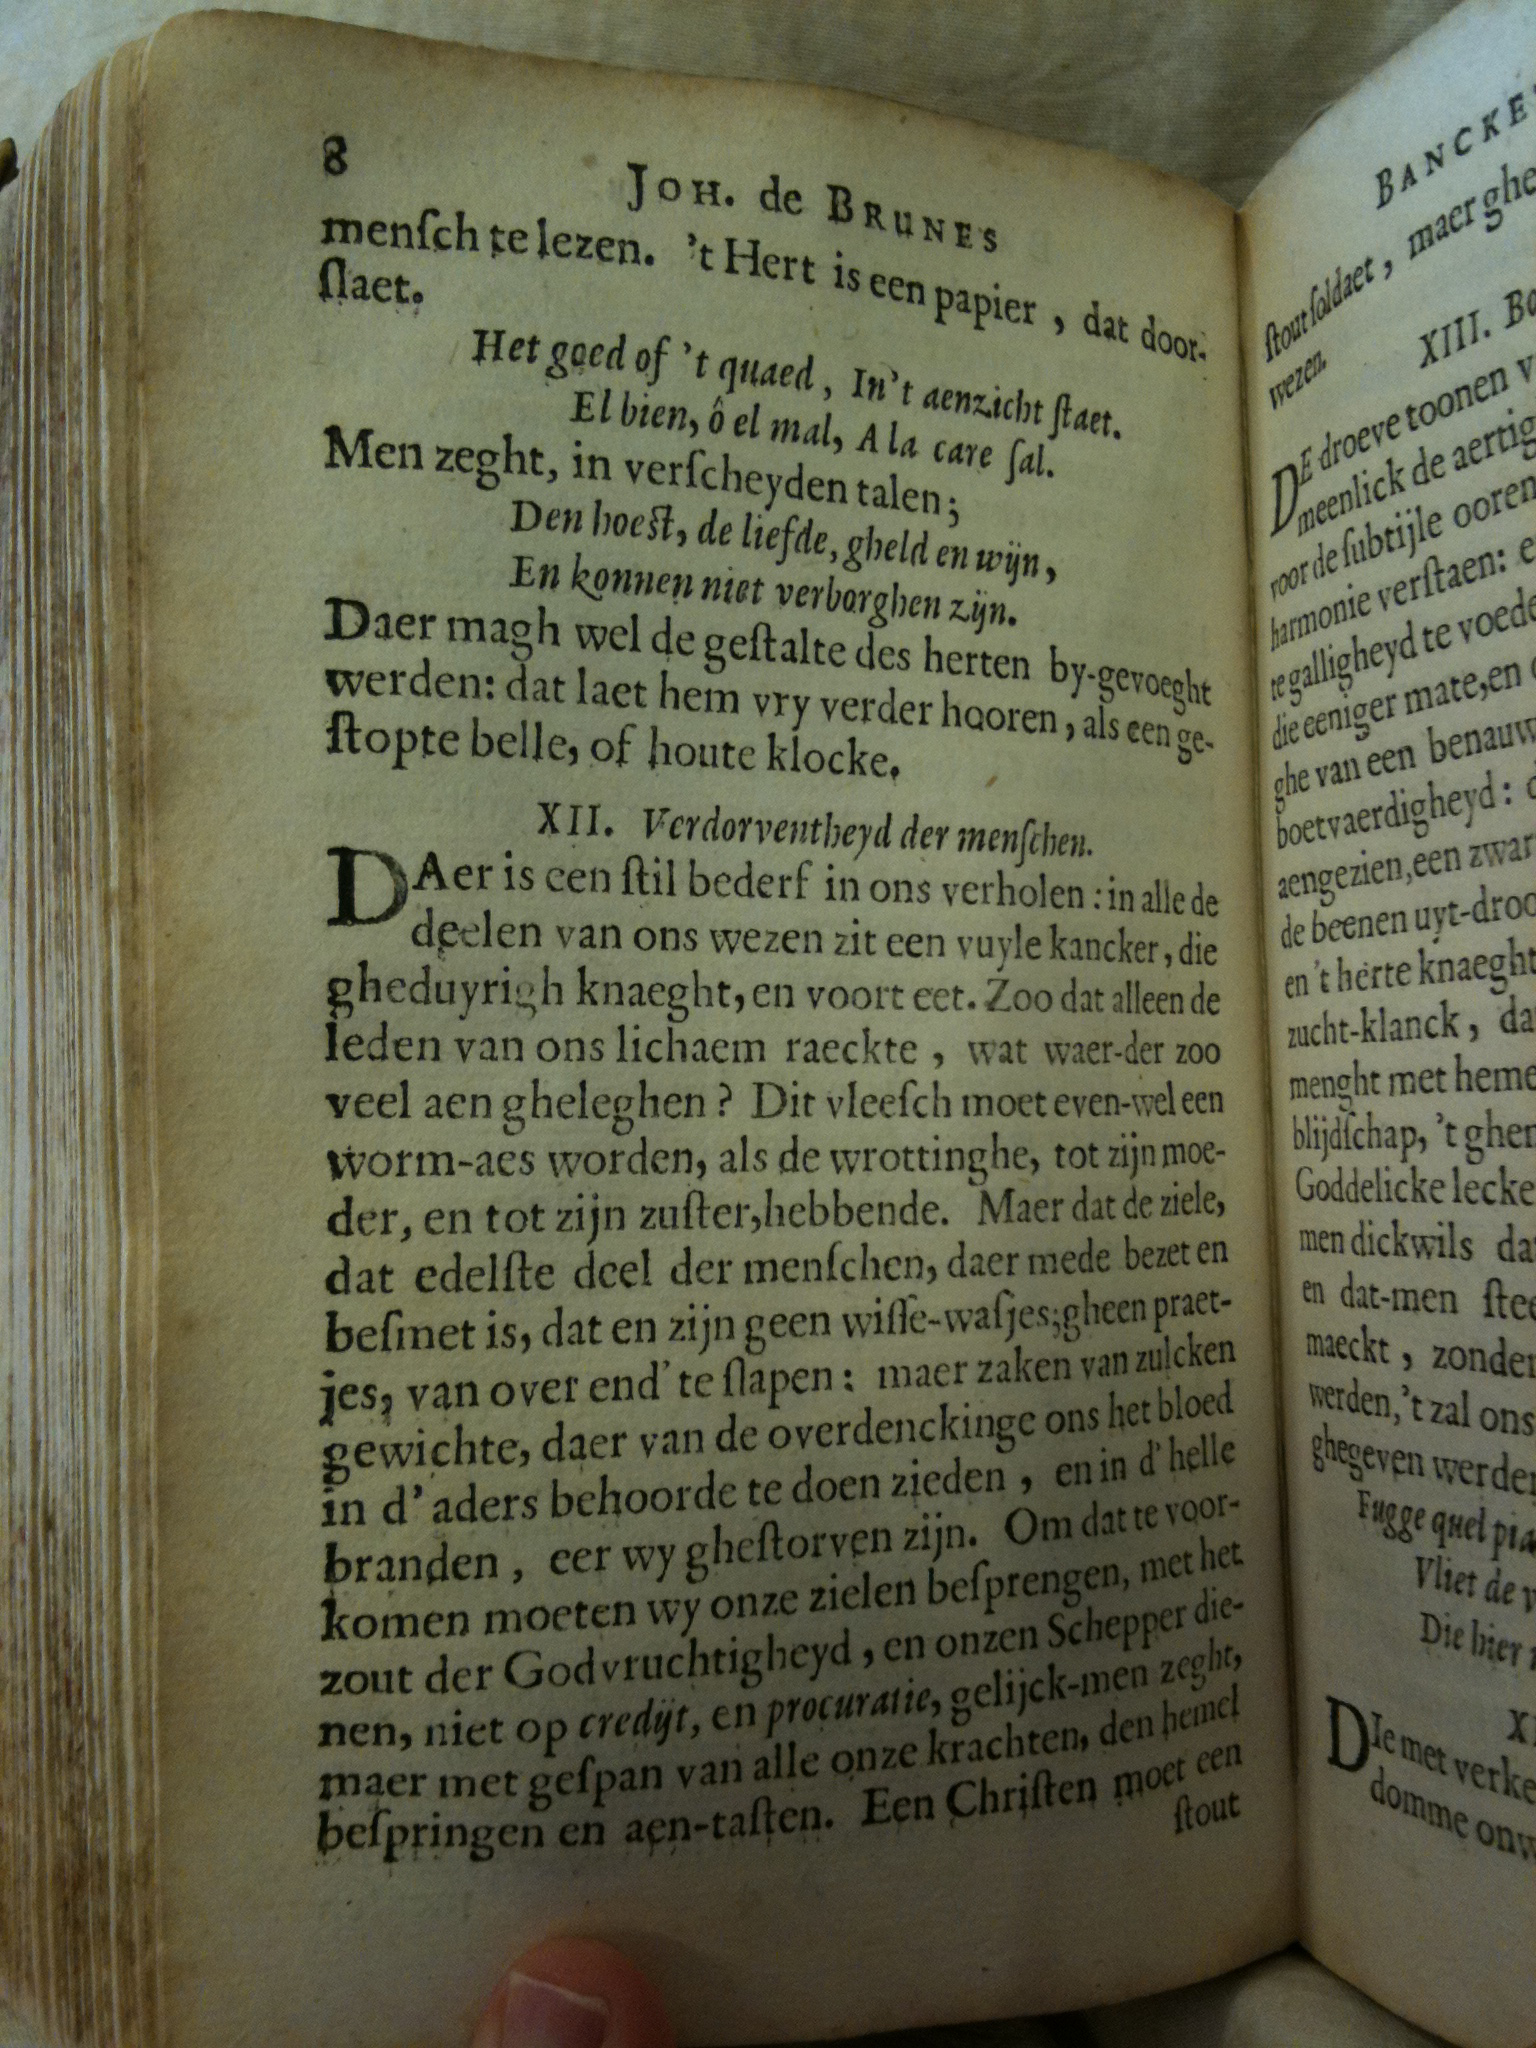 8
JOH. de BRUNES
menſch te lezen. 't Hert is een papier, dat door-
ſlaet.
Het goed of 't quaed, In't aenzicht ſtaet.
El bien, ô el mal, A la care ſal.
Men zeght, in verſcheyden talen;
Den hoeſt, de liefde, gheld en wijn,
En konnen niet verborghen zijn.
Daer magh wel de geſtalte des herten by-gevoeght
werden: dat laet hem vry verder hooren, als een ge-
ſtopte belle, of houte klocke.
XII. Verdorventheyd der menſchen.
DAer is een ſtil bederf in ons verholen: in alle de
deelen van ons wezen zit een vuyle kancker, die
gheduyrigh knaeght, en voort eet. Zoo dat alleen de
leden van ons lichaem raeckte, wat waer-der zoo
veel aen gheleghen? Dit vleeſch moet even-wel een
worm-aes worden, als de wrottinghe, tot zijn moe-
der, en tot zijn zuſter, hebbende. Maer dat de ziele,
dat edelſte deel der menſchen, daer mede bezet en
beſmet is, dat en zijn geen wiſſe-waſjes; gheen praet-
jes, van over end' te ſlapen: maer zaken van zulcken
gewichte, daer van de overdenckinge ons het bloed
in d'aders behoorde te doen zieden, en in d'helle
branden, eer wy gheſtorven zijn. Om dat te voor-
komen moeten wy onze zielen beſprengen, met het
zout der Godvruchtigheyd, en onzen Schepper die-
nen, niet op credijt, en procuratie, gelijck-men zeght,
maer met geſpan van alle onze krachten, den hemel
beſpringen en aen-taſten. Een Chriſten moet een
ſtout
BANCKE
ſtout ſoldaet, maer ghe
wezen.
XIII. Bo
DE droeve toonen v
meenlick de aertig
voor de ſubtijle ooren
harmonie verſtaen: e
te galligheyd te voede
die eeniger mate, en
ghe van een benauw
boetvaerdigheyd: d
aengezien, een zwar
de beenen uyt-droo
en 't herte knaeght
zucht-klanck, da
menght met heme
blijdſchap, 't gher
Goddelicke lecke
men dickwils da
en dat-men ſtee
maeckt, zonder
werden, 't zal ons
ghegeven werden
Fugge quel pia
Vliet de v
Die hier
X
DIe met verke
domme onw